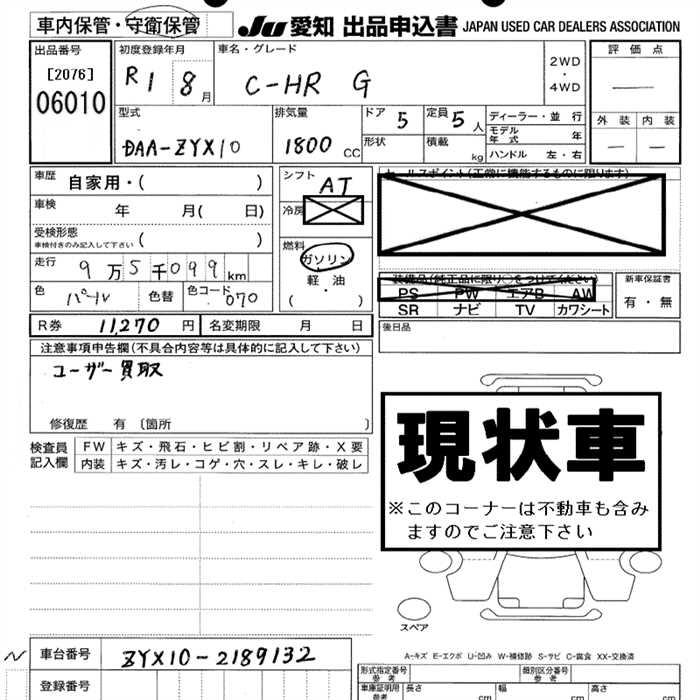 車内保管・守衛保管
JU 愛知 出品申込書 JAPAN USED CAR DEALERS ASSOCIATION
出品番号
[2076]
06010
初度登録年月
R1 8月
車名・グレード
C-HR G
2WD
・
4WD
評価点
—
外装 内装
— —
型式
DAA-ZYX10
排気量
1800 CC
ドア 5
形状
定員 5人
積載 kg
ディーラー・並行
モデル年式 年
ハンドル 左・右
車歴 自家用・( )
車検 年 月( 日)
受検形態
車検付きのみ記入して下さい ( )
走行 9万5千099km
色 パール 色替 色コード 070
シフト AT
冷房
燃料
ガソリン
軽油
・
( )
セールスポイント(正常に機能するものに限ります)
装備品(純正品に限り○をつけてください)
PS PW エアB AW
SR ナビ TV カワシート
新車保証書
有・無
後日品
R券 11,270 円 名変期限 月 日
注意事項申告欄(不具合内容等は具体的に記入して下さい)
ユーザー買取
修復歴 有 〔箇所 〕
検査員記入欄
FW キズ・飛石・ヒビ割・リペア跡・X要
内装 キズ・汚レ・コゲ・穴・スレ・キレ・破レ
現状車
※このコーナーは不動車も含み
ますのでご注意下さい
スペア
A-キズ E-エクボ U-凹み W-補修跡 S-サビ C-腐食 XX-交換済
車台番号 ZYX10-2189132
登録番号
形式指定番号 参考
個別区分番号 参考
車庫証明用 参考 長さ cm 幅 cm 高さ cm